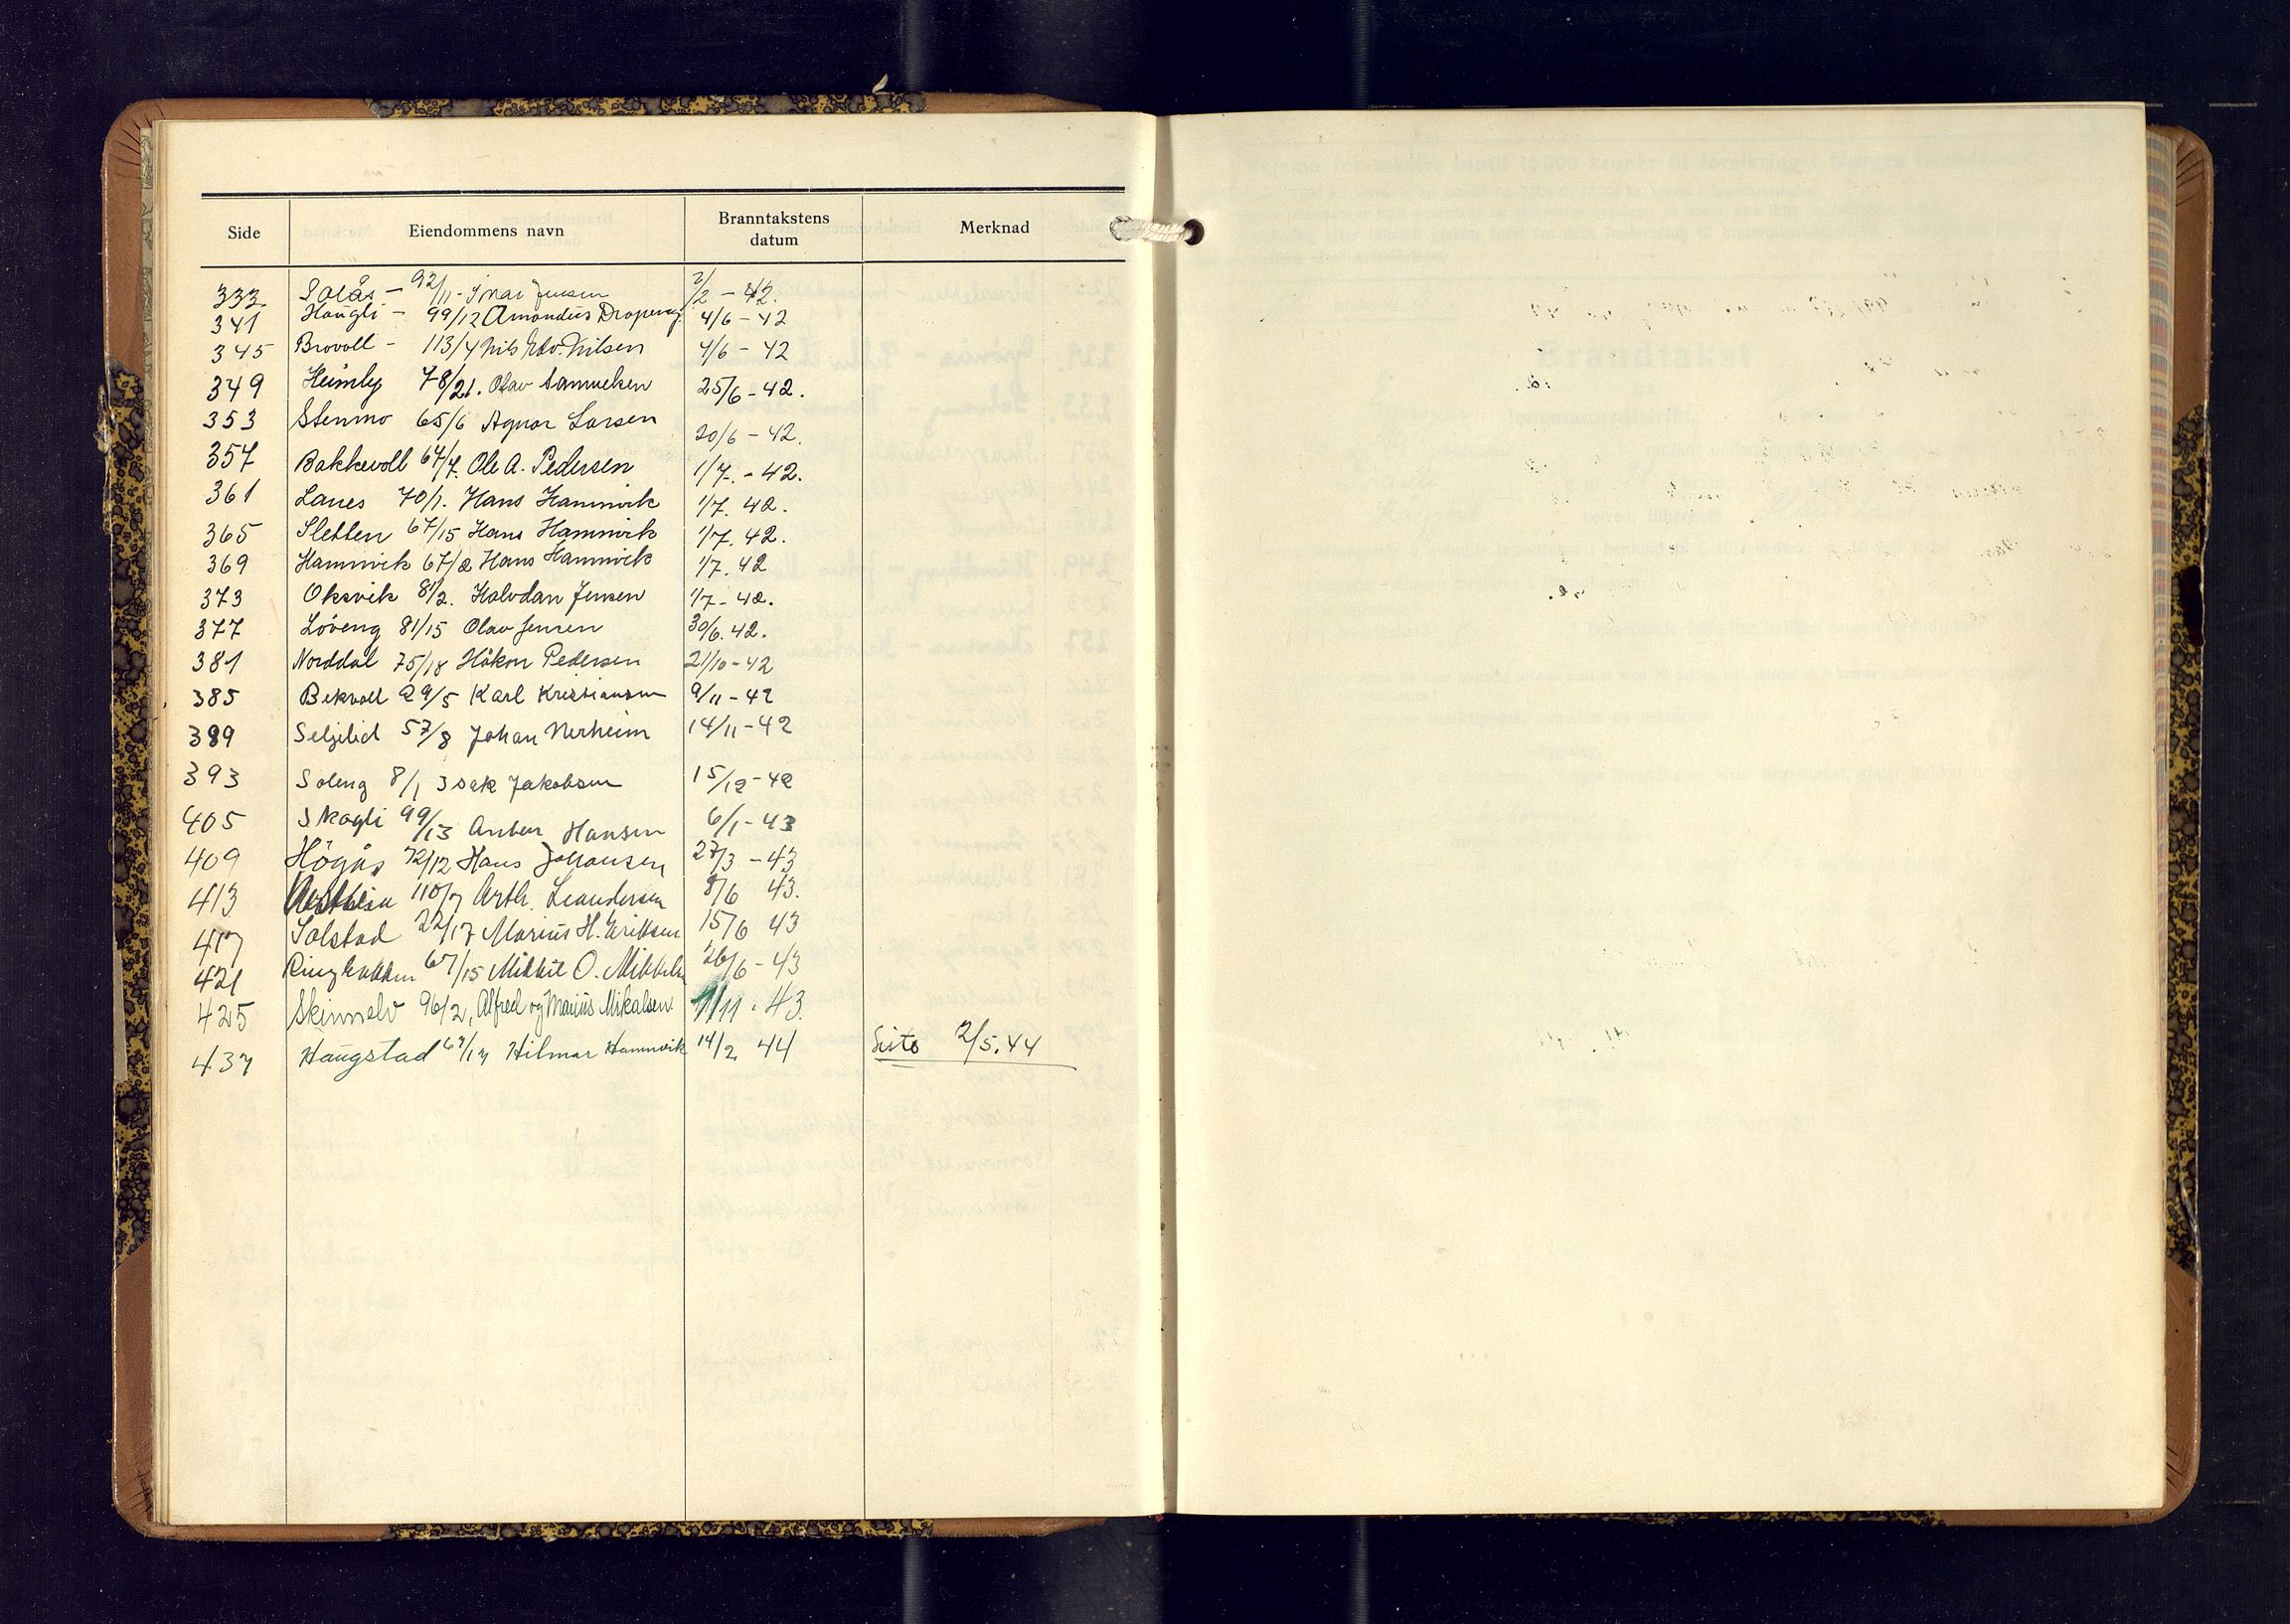 Side Eiendommens navn Branntakstens datum Merknad
333 Solås - 92/11 - Ivar Jensen 2/2 - 42.
341 Haugli - 99/12 Amandus Drapeng 4/6 - 42
345 Brovoll - 113/4 Nils Edv. Nilsen 4/6 - 42
349 Heimly 78/21. Olav Samuelsen 25/6 - 42.
353 Stenmo 65/6 Agnar Larsen 20/6 - 42.
357 Bakkevoll 67/7. Ole A. Pedersen 1/7. - 42.
361 Lanes 70/1. Hans Hamnvik 1/7. 42.
365 Sletten 67/15 Hans Hamnvik 1/7. 42.
369 Hamnvik 67/2 Hans Hamnvik 1/7. 42
373 Oksvik 81/2. Halvdan Jensen 1/7 - 42.
377 Löveng 81/15 Olav Jensen 30/6. 42.
381 Norddal 75/18 Håkon Pedersen 21/10 - 42
385 Bekvoll 29/5 Karl Kristiansen 9/11 - 42
389 Seljelid 57/8 Johan Nerheim 14/11 - 42
393 Soleng 8/1 Isak Jakobsen 15/12 - 42
405 Skogli 99/13 Anton Hansen 6/1 - 43
409 Högås 72/12 Hans Johansen 27/3 - 43
413 110/7 Arth. Leandersen 8/6 43.
417 Solstad 22/17 Marius H. Eriksen 15/6 43
421 67/15 Mikkel O. 26/6 - 43
425 Skinnelv 96/2, Alfred og Marius Mikalsen. 1/11 . 43.
437 Haugstad 67/17 Hilmar Hamnvik 14/2 44 Siste 2/5.44